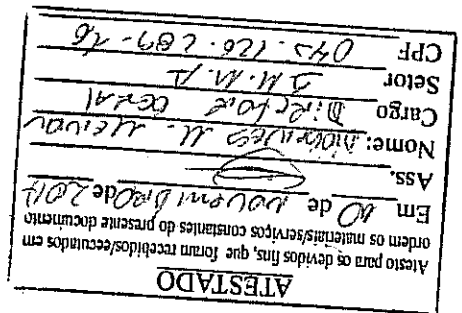 ATESTADO
Atesto para os devidos fins, que foram recebidos/executados em
ordem os materiais/serviços constantes do presente documento
Em 10 de novembro de 2017
Ass.
Nome: M.
Cargo Diretor Geral
Setor I.M.M.A
CPF 042.126.289-16